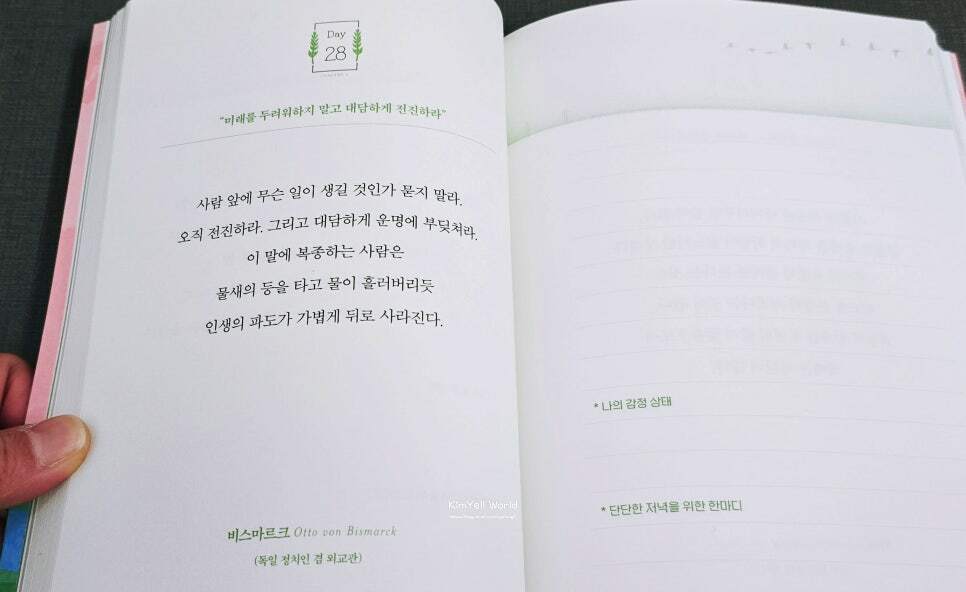 Day
28
"미래를 두려워하지 말고 대담하게 전진하라"
사람 앞에 무슨 일이 생길 것인가 묻지 말라.
오직 전진하라. 그리고 대담하게 운명에 부딪쳐라.
이 말에 복종하는 사람은
물새의 등을 타고 물이 흘러버리듯
인생의 파도가 가볍게 뒤로 사라진다.
비스마르크 Otto von Bismarck
(독일 정치인 겸 외교관)
* 나의 감정 상태
* 단단한 저녁을 위한 한마디
KimYell World